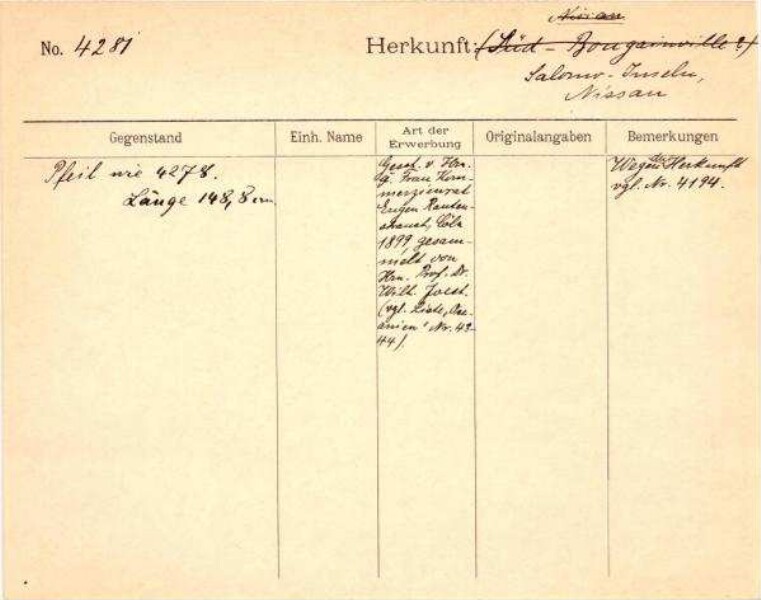 No. 4281
Herkunft: (Süd - Bougainville?)
Salomo-Inseln,
Nissan
Gegenstand
Einh. Name
Art der
Erwerbung
Originalangaben
Bemerkungen
Pfeil wie 4278.
Länge 148,8 cm
Gesch. v. Hrn.
u. Frau Kom-
merzienrat
Eugen Rauten-
strauch, Cöln
1899, gesam-
melt von
Hrn. Prof. Dr.
Wilh. Joest.
(vgl. Liste, Oze-
anien' Nr. 43-
44).
Wegen der Herkunft
vgl. Nr. 4194.